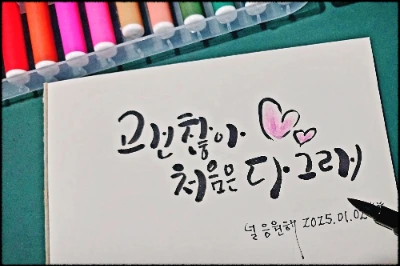 괜찮아
처음은 다 그래
널 응원해 2025.01.02